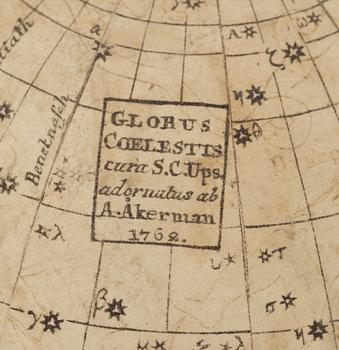 GLOBUS
CŒLESTIS
cura S.C.Ups.
adornatus ab
A.Åkerman
1762.
Benetnasch
α
A
β
ζ
η
θ
λ
υ
τ
β
σ
γ
η